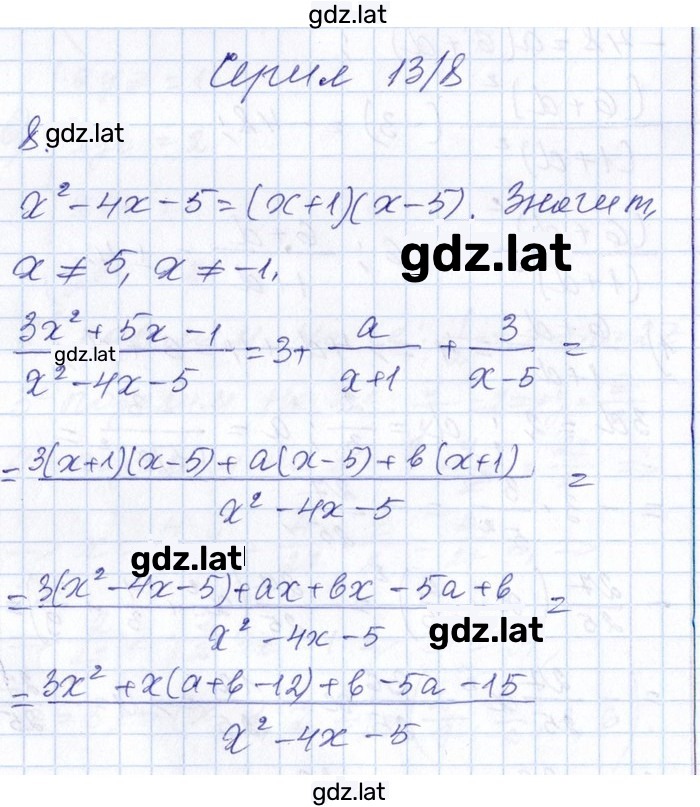 gdz.lat
Серия 13/8
8.
gdz.lat
x² - 4x - 5 = (x+1)(x-5). Значит,
x ≠ 5, x ≠ -1,
gdz.lat
(3x² + 5x - 1)/(x² - 4x - 5) = 3 + a/(x+1) + 3/(x-5) =
gdz.lat
= (3(x+1)(x-5) + a(x-5) + в(x+1))/(x² - 4x - 5) =
gdz.lat
= (3(x² - 4x - 5) + ax + вx - 5a + в)/(x² - 4x - 5) =
gdz.lat
= (3x² + x(a+в-12) + в - 5a - 15)/(x² - 4x - 5)
gdz.lat